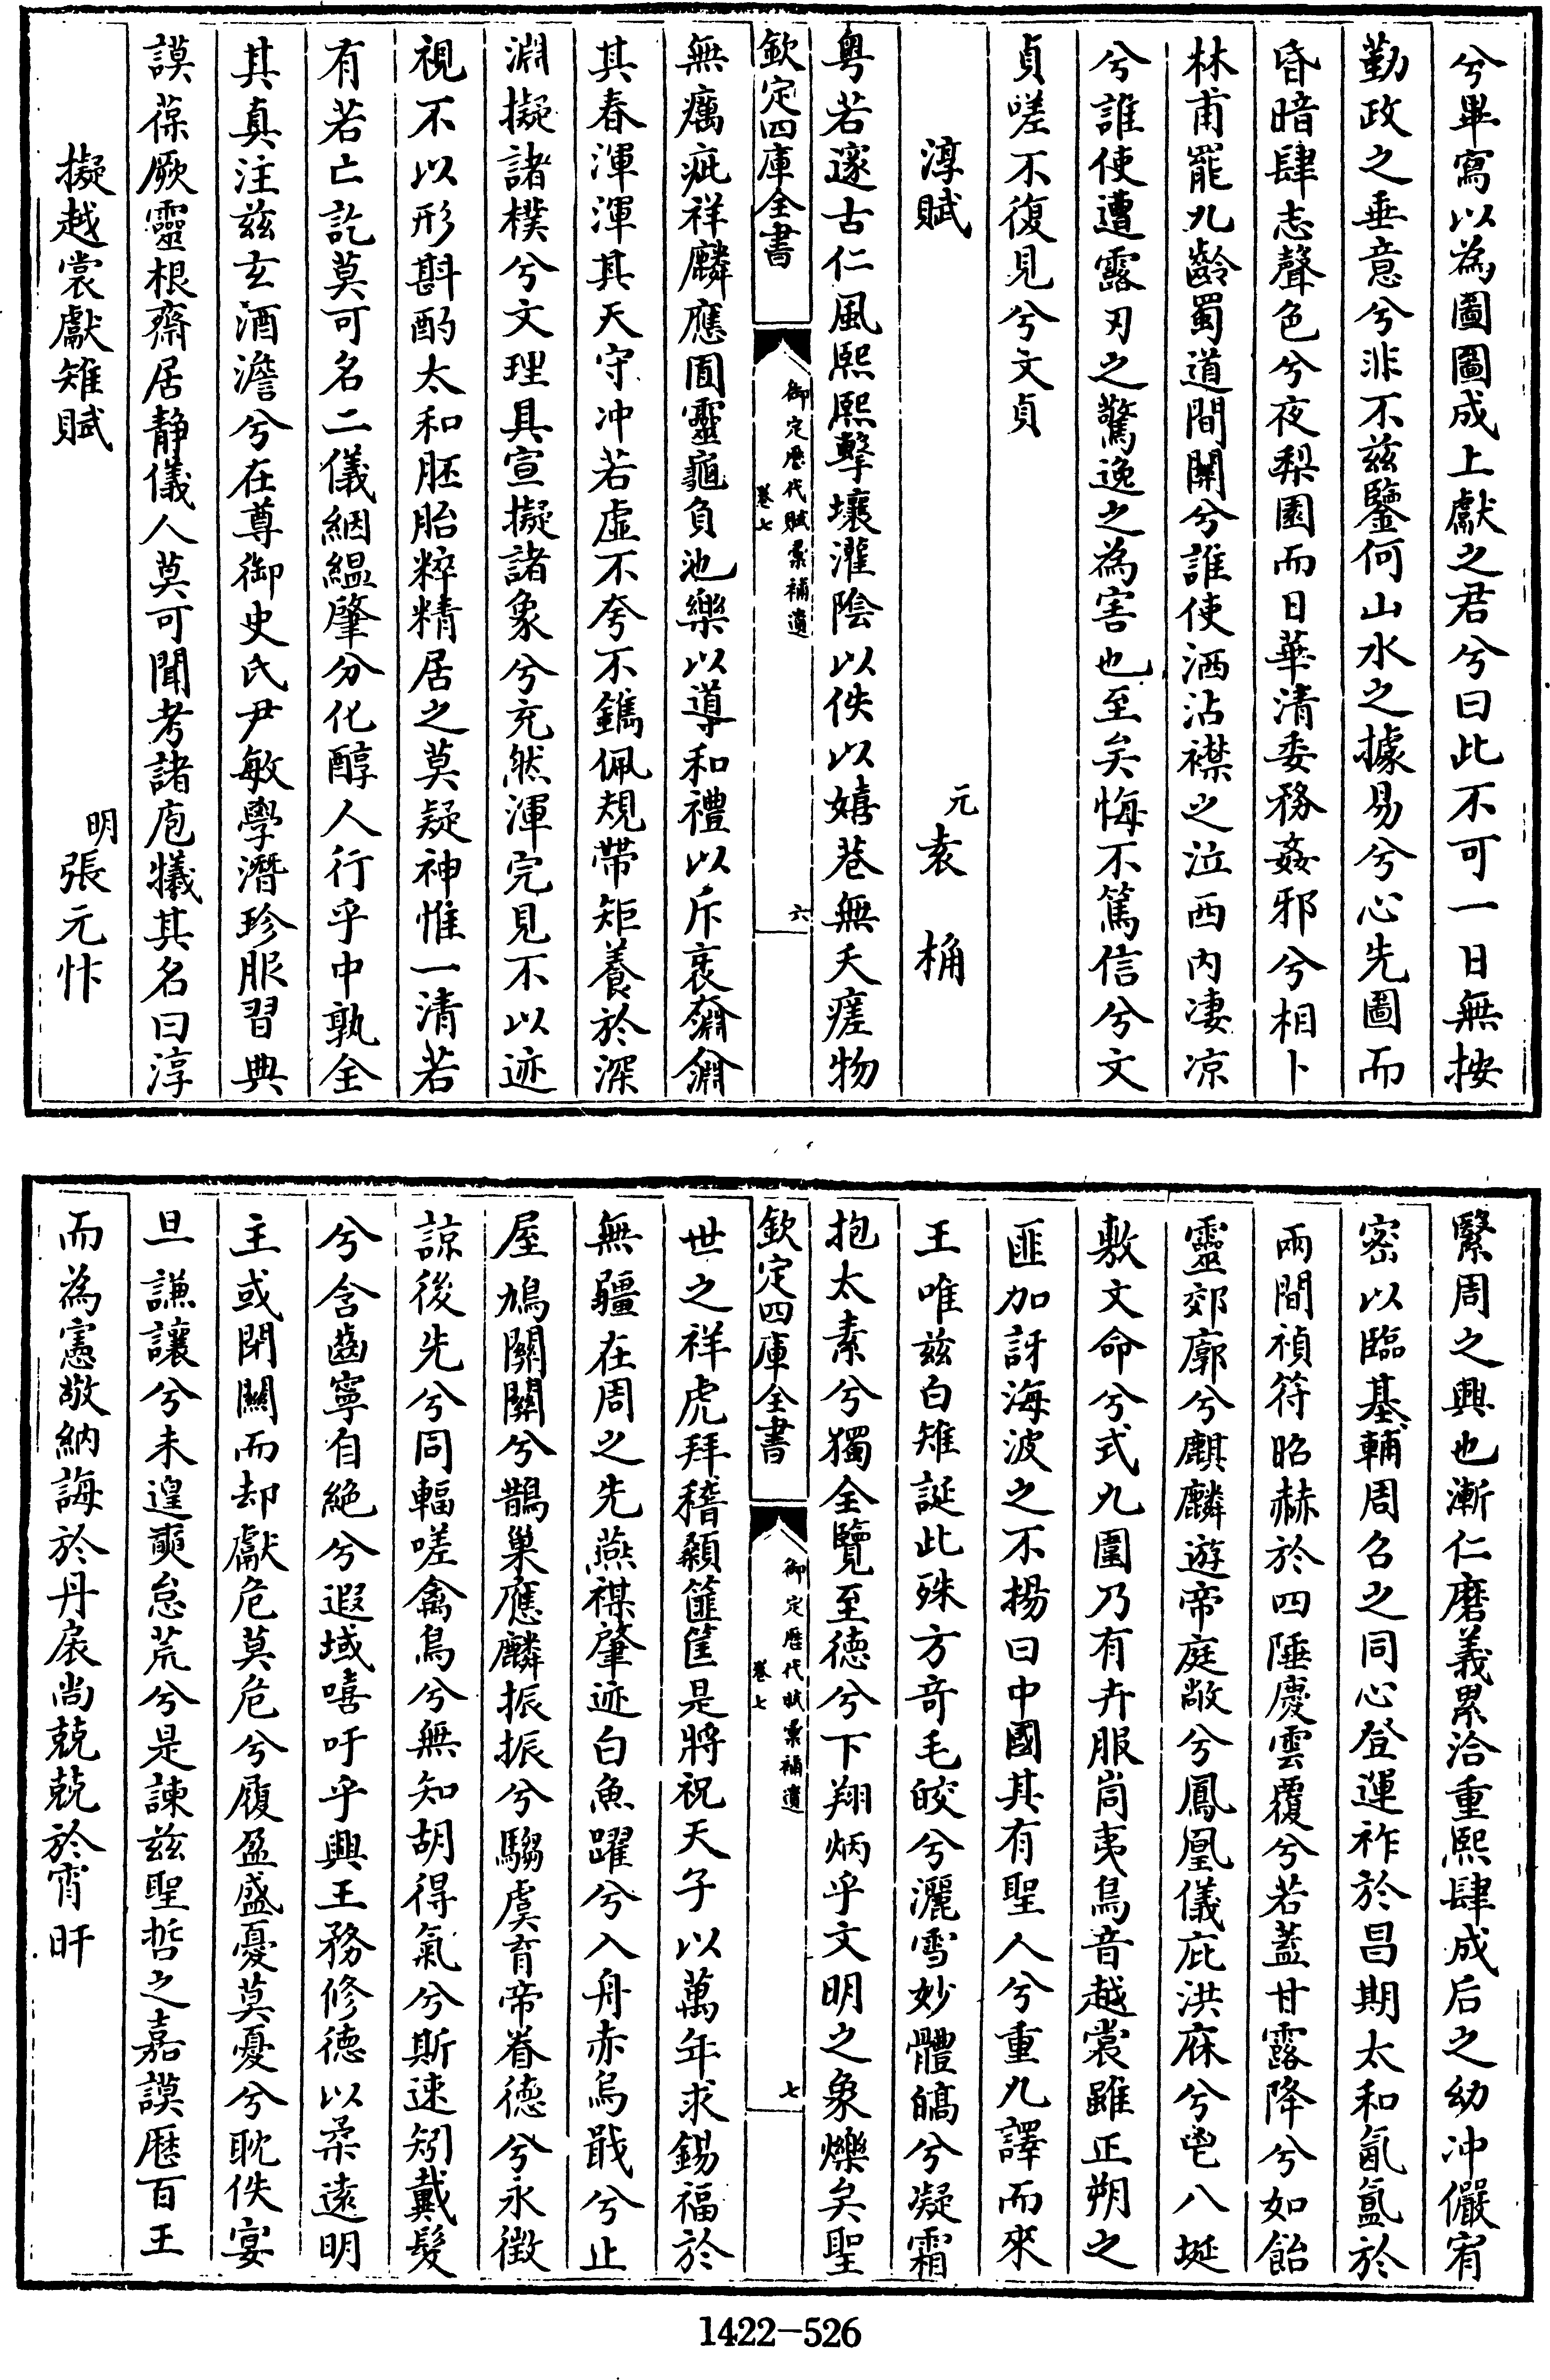 兮畢寫以為圖圖成上獻之君兮曰此不可一日無按
勤政之垂意兮非不兹鑒何山水之據易兮心先圖而
昏暗肆志聲色兮夜梨園而日華清委務姦邪兮相卜
林甫罷九齡蜀道間關兮誰使洒沾襟之泣西内淒凉
兮誰使遭露刃之驚逸之為害也至矣悔不篤信兮文
貞嗟不復見兮文貞
淳賦
元袁桷
粤若邃古仁風熙熙擊壤灌陰以佚以嬉巷無夭瘥物
欽定四庫全書
御定歷代賦彙補遺
卷七
六
無癘疵祥麟應囿靈龜負池樂以導和禮以斥衺奫奫
其春渾渾其天守冲若虚不夸不鐫佩規帶矩養於深
淵擬諸樸兮文理具宣擬諸象兮充然渾完見不以迹
視不以形斟酌太和胚胎粹精居之莫疑神惟一清若
有若亡訖莫可名二儀絪緼肇分化醇人行乎中孰全
其真注兹玄酒澹兮在尊御史氏尹敏學潛珍服習典
謨葆厥靈根齋居静儀人莫可聞考諸庖犧其名曰淳
擬越裳獻雉賦
明張元忭
繄周之興也漸仁磨義累洽重熙肆成后之幼冲儼宥
密以臨基輔周召之同心登運祚於昌期太和氤氲於
兩間禎符昭赫於四陲慶雲覆兮若蓋甘露降兮如飴
靈郊廓兮麒麟遊帝庭敞兮鳳凰儀庇洪庥兮鬯八埏
敷文命兮式九圍乃有卉服峝夷鳥音越裳雖正朔之
匪加訝海波之不揚曰中國其有聖人兮重九譯而來
王唯兹白雉誕此殊方奇毛皎兮灑雪妙體皜兮凝霜
抱太素兮獨全覽至德兮下翔炳乎文明之象爍矣聖
欽定四庫全書
御定歷代賦彙補遺
卷七
七
世之祥虎拜稽顙篚筐是將祝天子以萬年求錫福於
無疆在周之先燕禖肇迹白魚躍兮入舟赤烏戢兮止
屋鳩關關兮鵲巢應麟振振兮騶虞育帝眷德兮永徵
諒後先兮同輻嗟禽鳥兮無知胡得氣兮斯速矧戴髮
兮含齒寧自絶兮遐域嘻吁乎興王務修德以柔遠明
主或閉關而却獻危莫危兮履盈盛憂莫憂兮耽佚宴
旦謙讓兮未遑奭怠荒兮是諫兹聖哲之嘉謨歷百王
而為憲敬納誨於丹扆尚兢兢於宵旰
1422-526